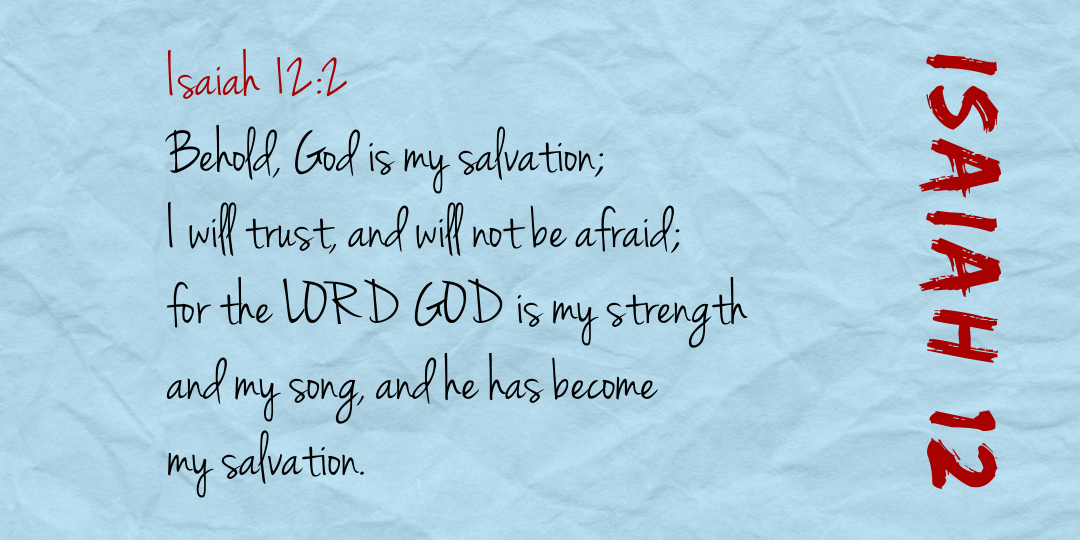 Isaiah 12:2
Behold, God is my salvation;
I will trust, and will not be afraid;
for the LORD GOD is my strength
and my song, and he has become
my salvation.
ISAIAH 12